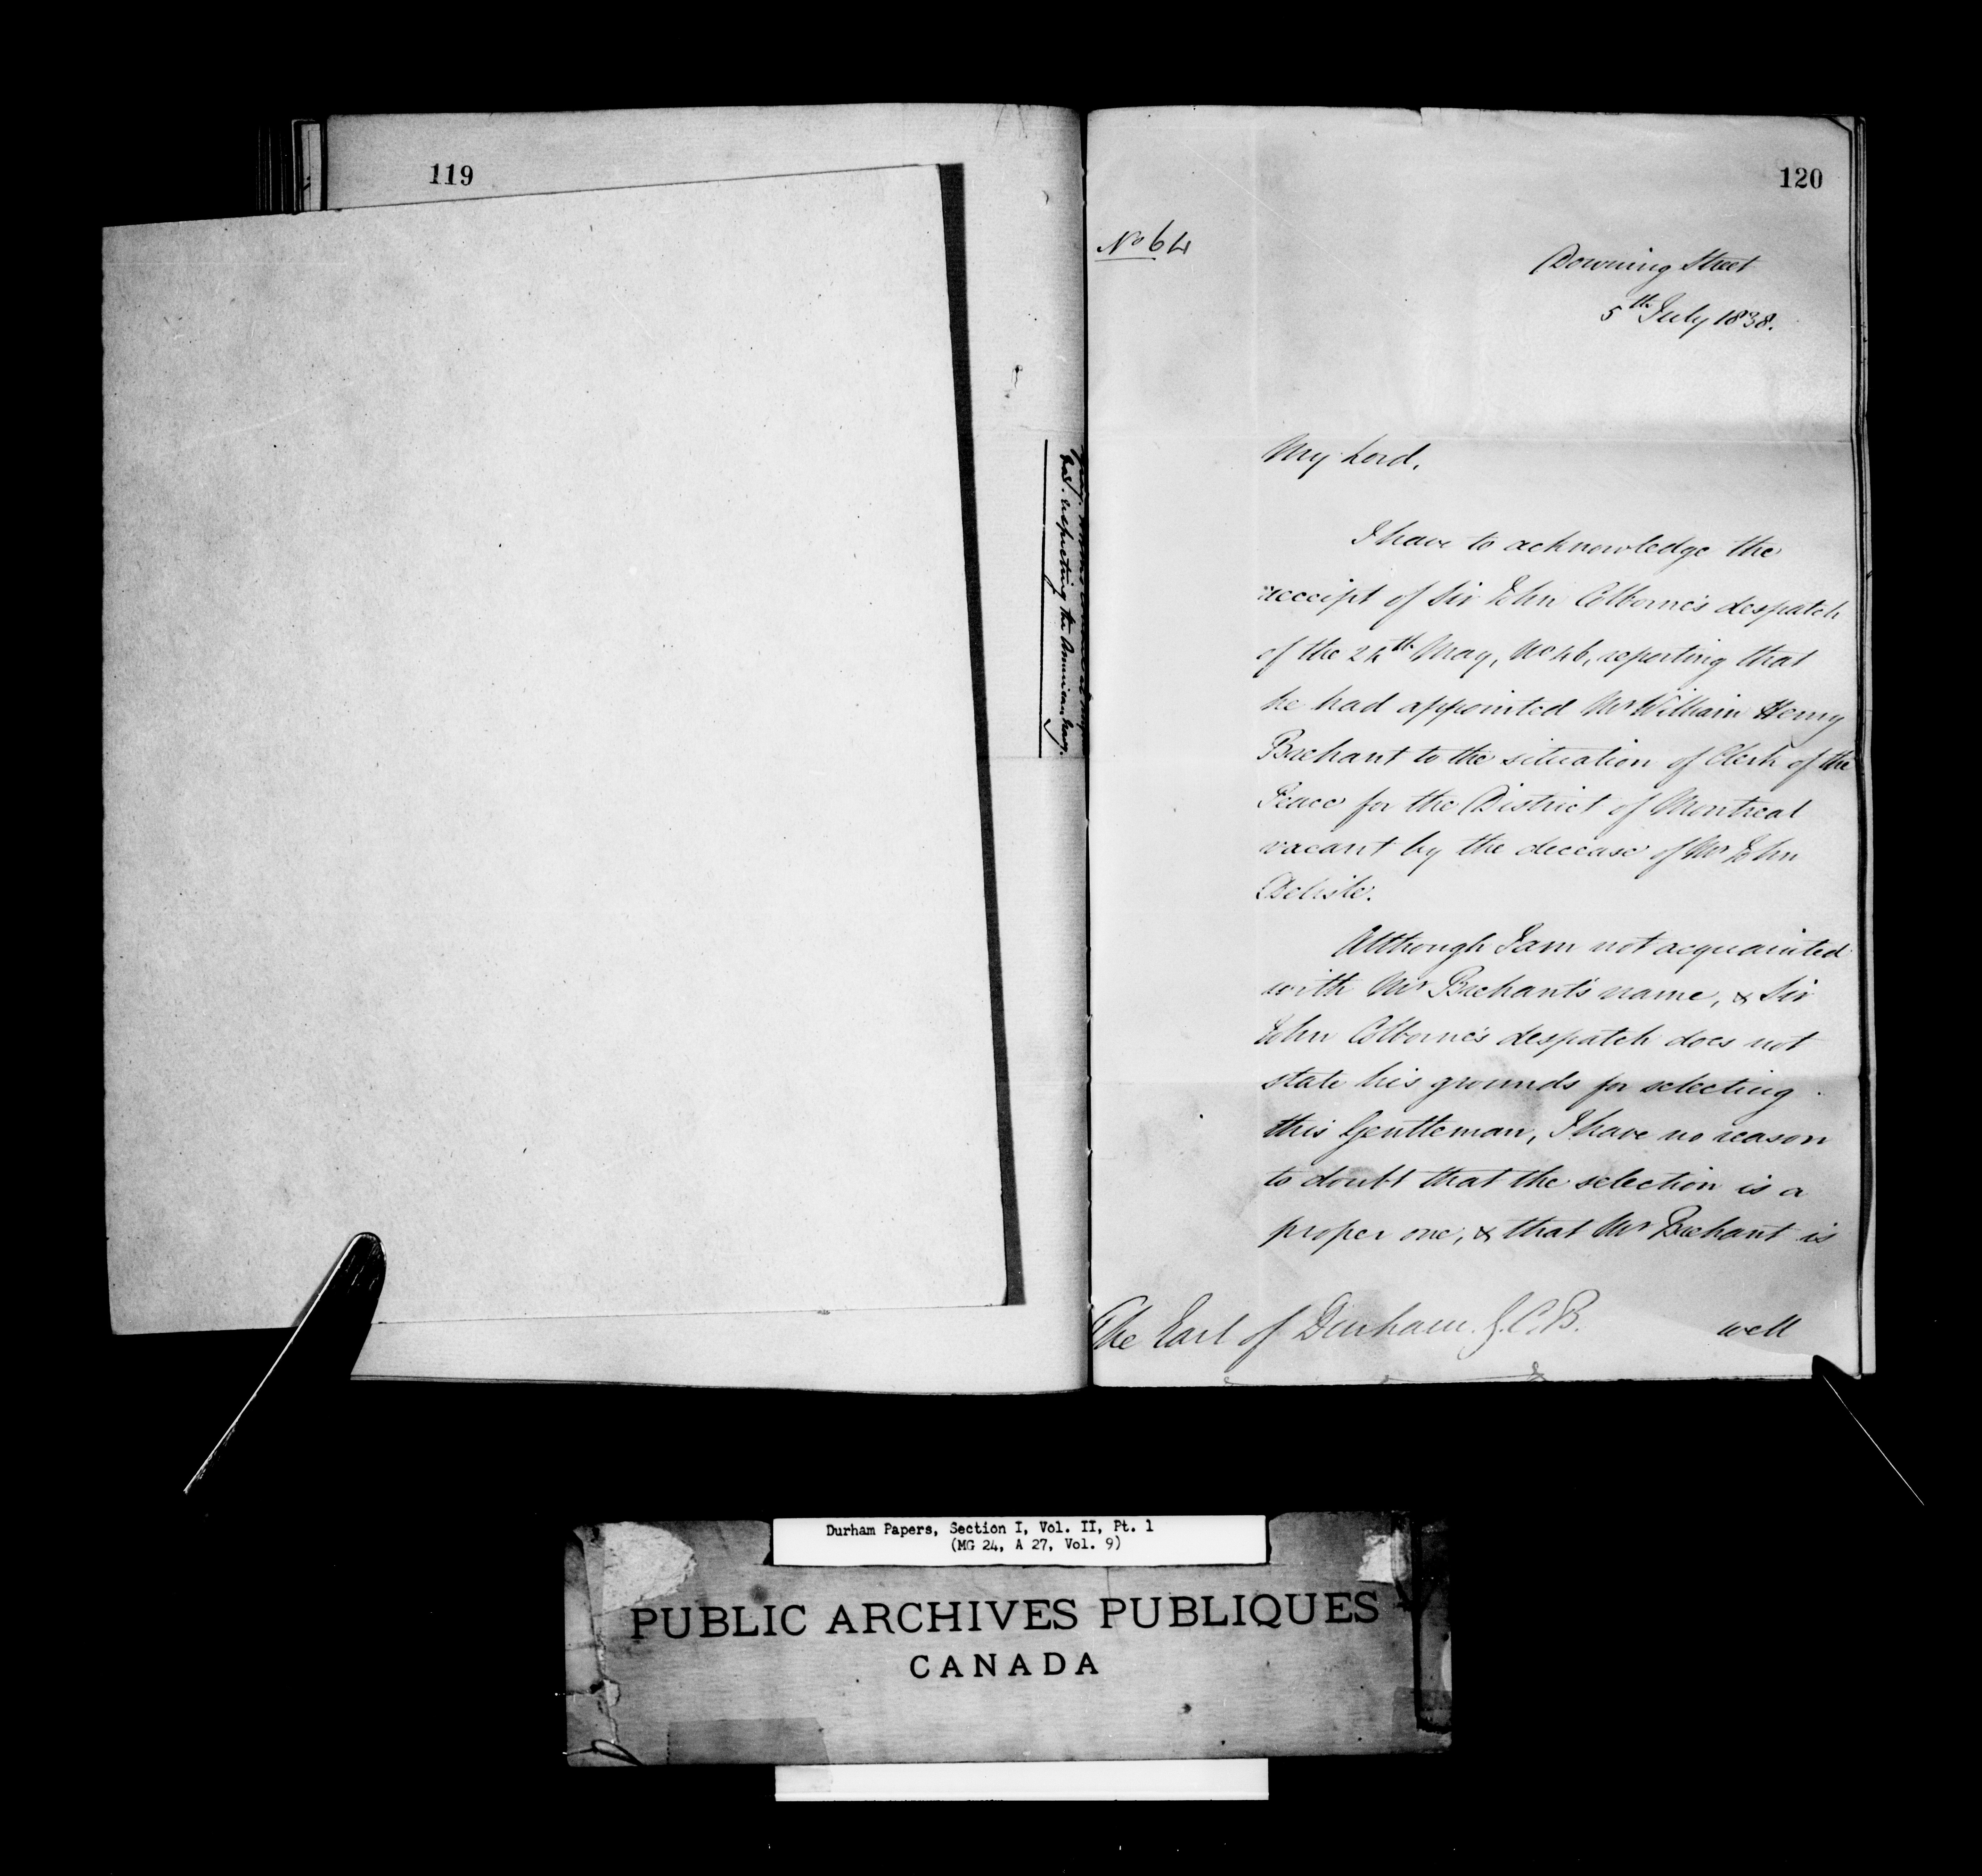 119
120
No 64
Downing Street
5th July 1838.
My Lord,
I have to acknowledge the
receipt of Sir John Colborne's despatch
of the 24th May, No 46, reporting that
he had appointed Mr William Henry
Brehant to the situation of Clerk of the
Peace for the District of Montreal
vacant by the decease of Mr John
Delisle.
Although I am not acquainted
with Mr Brehant's name, & Sir
John Colborne's despatch does not
state his grounds for selecting
this Gentleman, I have no reason
to doubt that the selection is a
proper one, & that Mr Brehant is
The Earl of Durham. G.C.B.
well
respecting the American
Durham Papers, Section I, Vol. II, Pt. 1
(MG 24, A 27, Vol. 9)
PUBLIC ARCHIVES PUBLIQUES
CANADA